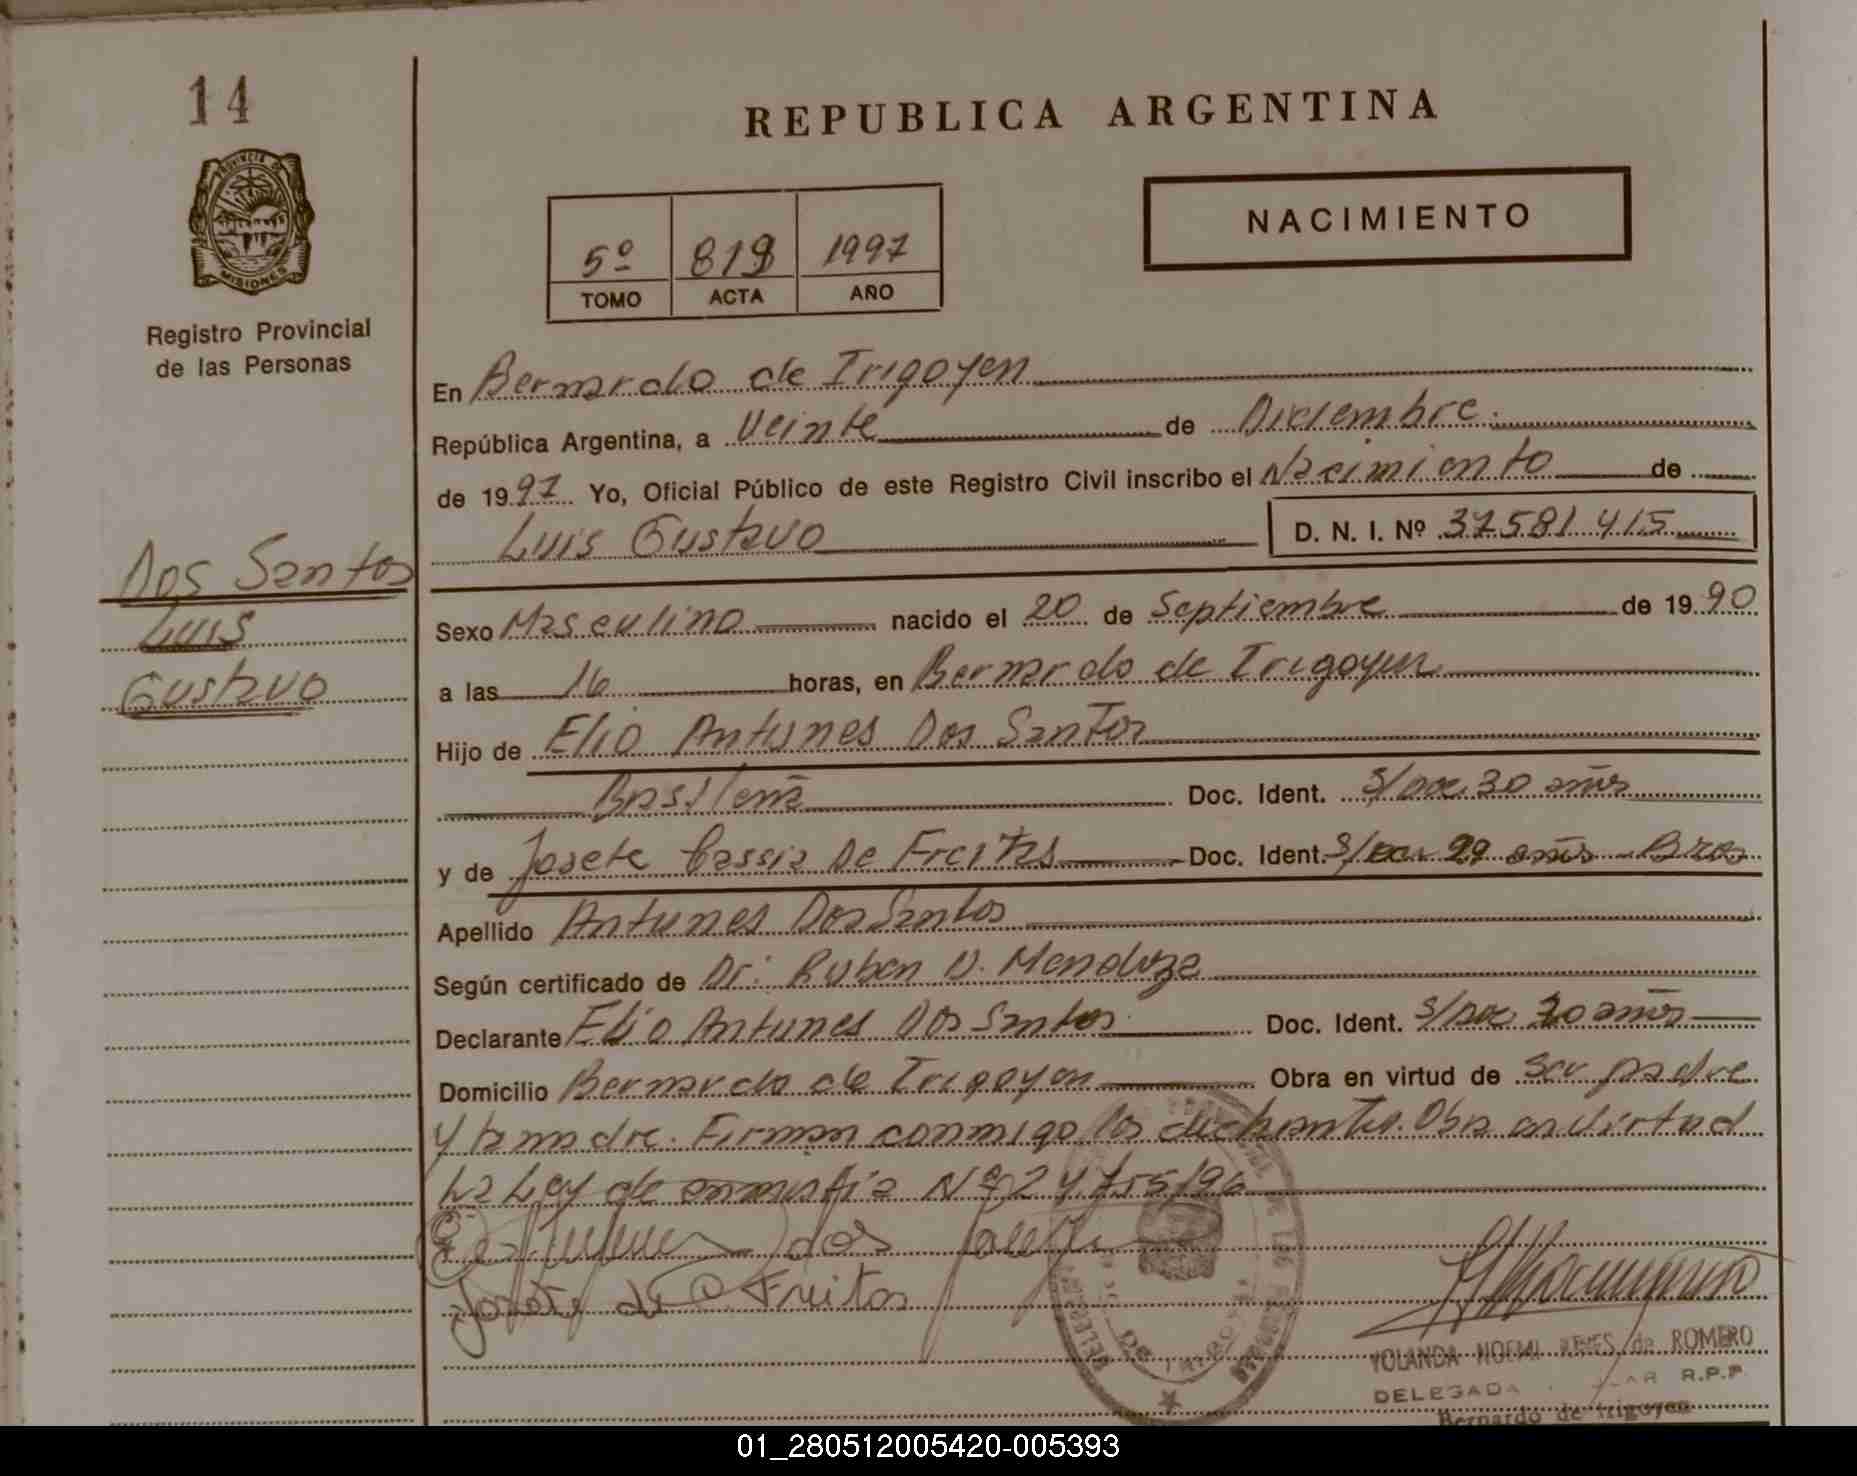 14
PROVINCIA DE
MISIONES
Registro Provincial
de las Personas
Dos Santos
Luis
Gustavo
REPUBLICA ARGENTINA
NACIMIENTO
5º 819 1997
TOMO ACTA AÑO
En Bernardo de Irigoyen
República Argentina, a Veinte de Diciembre
de 1997 Yo, Oficial Público de este Registro Civil inscribo el Nacimiento de
Luis Gustavo D. N. I. Nº 37.581.415
Sexo Masculino nacido el 20 de Septiembre de 1990
a las 16 horas, en Bernardo de Irigoyen
Hijo de Elio Antunes Dos Santos
Doc. Ident. S/doc 30 años
y de Josete Cassia De Freitas Doc. Ident. S/doc 29 años Bras
Apellido Antunes Dos Santos
Según certificado de Dr: Ruben D. Mendoza
Declarante Elio Antunes Dos Santos Doc. Ident. S/doc 30 años
Domicilio Bernardo de Irigoyen Obra en virtud de ser padre
y la madre. Firman conmigo los declarantes. Obra en virtud
La Ley de amnistia Nº 24755/96
dos
Josete de Freitas
YOLANDA NOEMI REYES de ROMERO
DELEGADA R.P.P.
Bernardo de Irigoyen
01_280512005420-005393